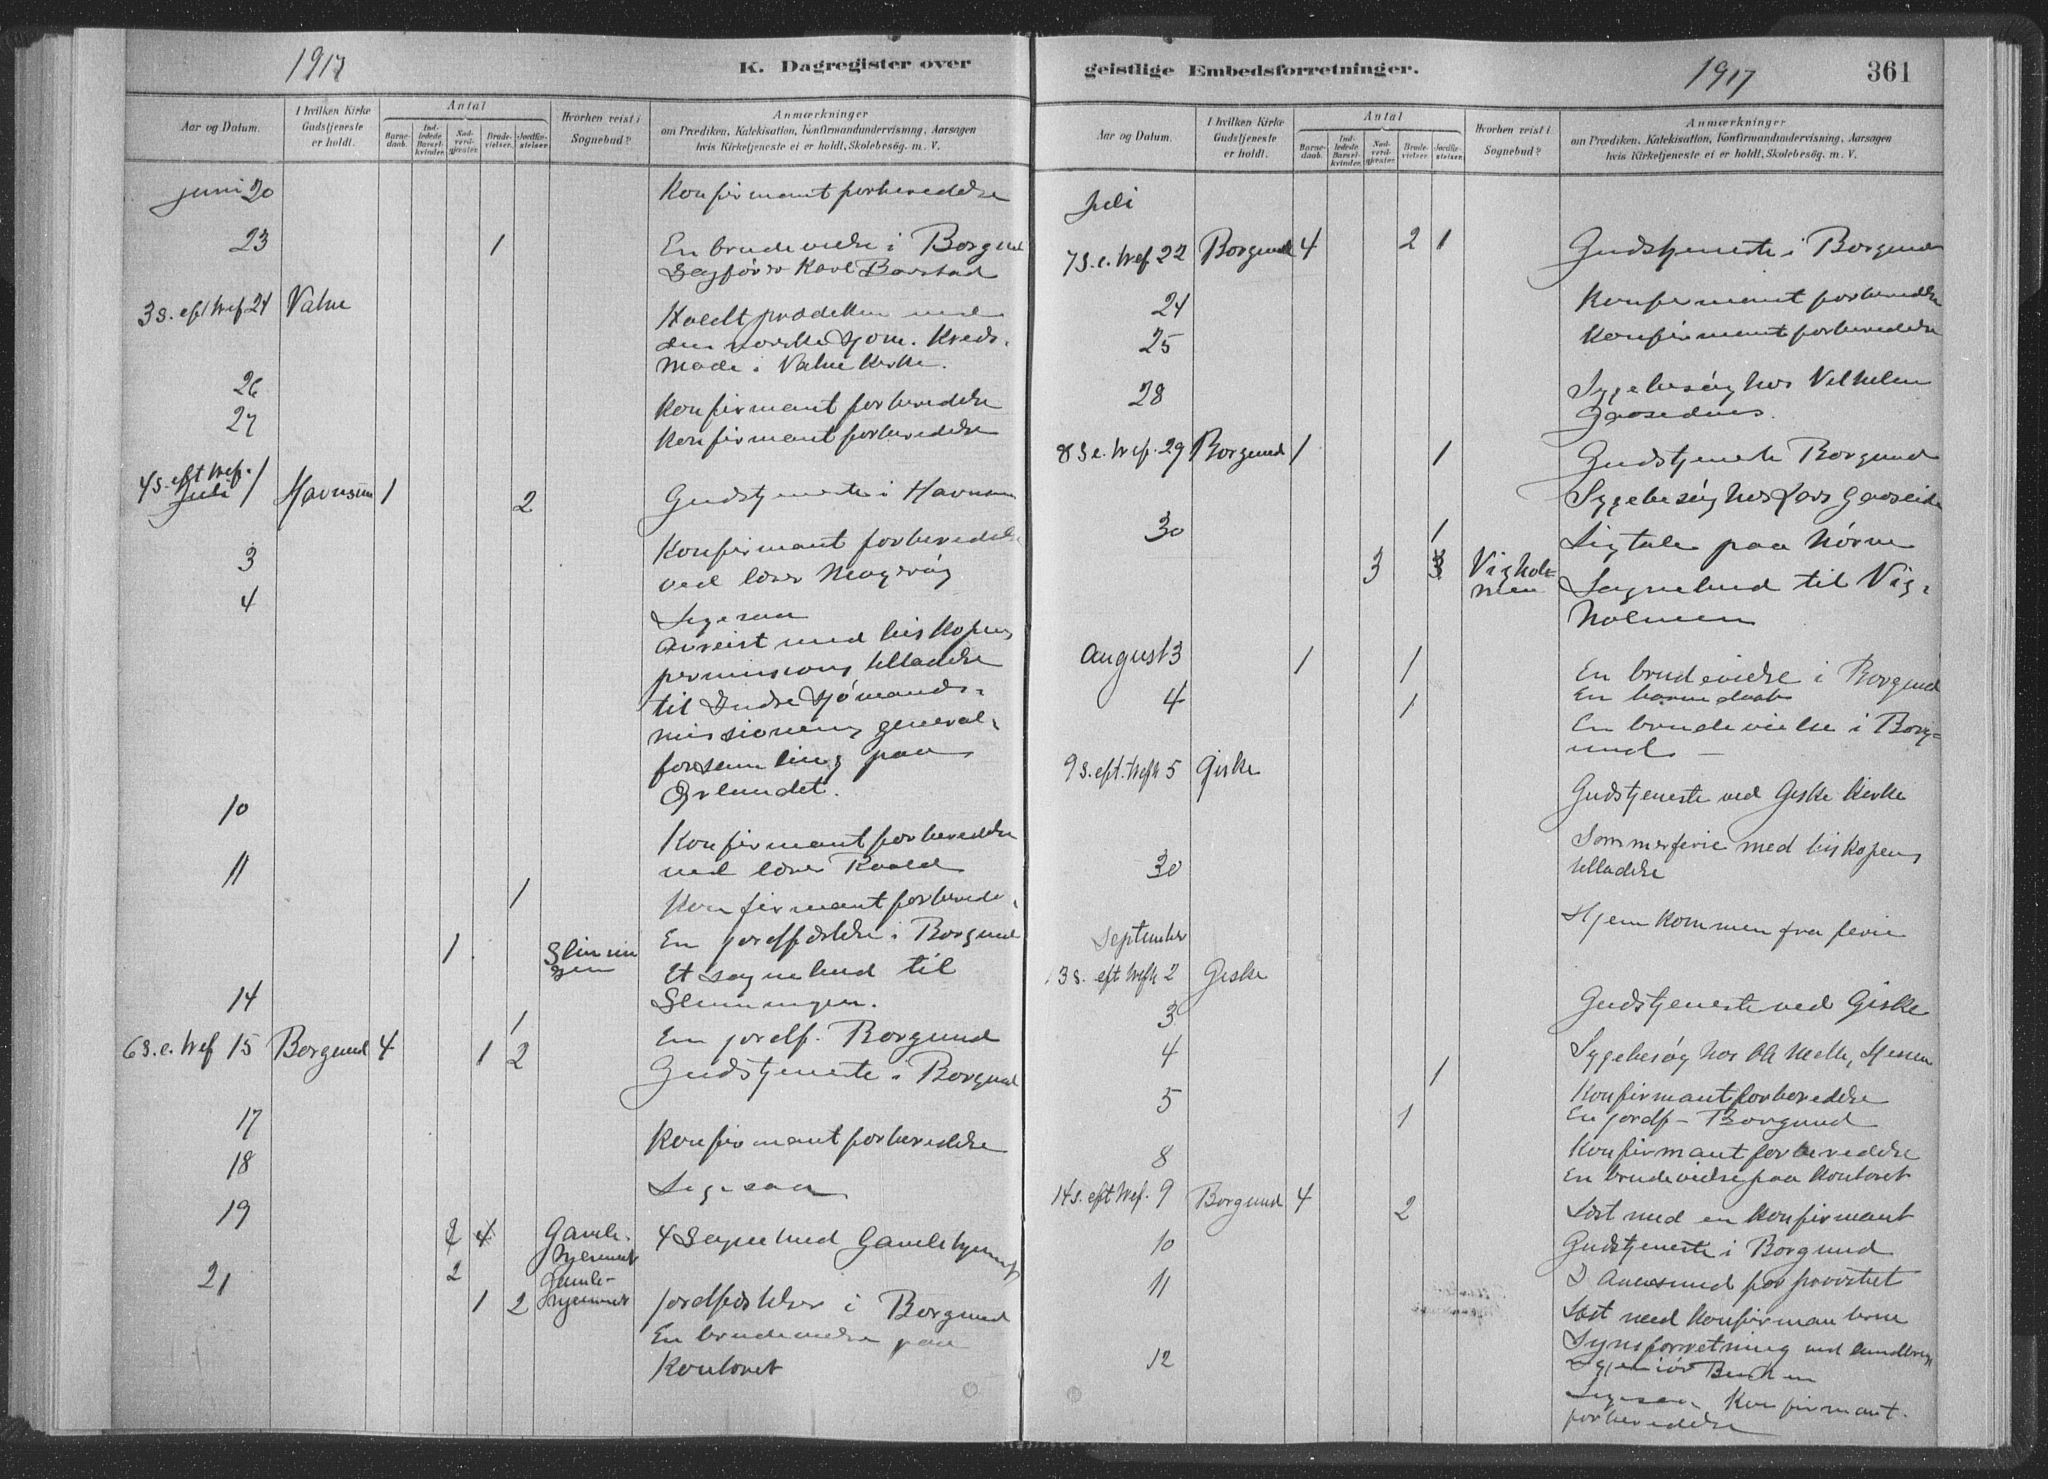 1917
K. Dagregister over
Aar og Datum.
I hvilken Kirke Gudstjeneste er holdt.
Antal
Barnedaab.
Indledede Barselkvinder.
Nadverdgjæster.
Brudevielser.
Jordfæstelser.
Hvorhen reist i Sognebud?
Anmærkninger
om Prædiken, Katekisation, Konfirmandundervisning, Aarsagen
hvis Kirketjeneste ei er holdt, Skolebesøg. m. V.
juni 20 Konfirmantforberedelse
23 1 En brudevielse i Borgund
Sagfører Karl Barstad
3 s. eft tref 24 Valne Holdt prædiken ved
den norske sjøm. Kreds-
møde i Valne Kirke.
26 Konfirmantforberedelse
27 Konfirmantforberedelse
4 s. eft tref.
Juli 1 Havnsun 1 2 Gudstjeneste i Havnsun
3 Konfirmantforberedelse
ved lærer Magerøy
4 Ligesaa
Avreist med biskopens
permissions tilladelse
til Indre Sjømands-
missionens general-
forsamling paa
Ørlandet.
10 Konfirmantforberedelse
ved lærer Roald
11 Konfirmantforberede-
1 En jordfæstelse i Borgund
1 Slinningen Et sognebud til
Slinningen.
14 1 En jordf. Borgund
6 s. e. tref 15 Borgund 4 1 2 Gudstjeneste i Borgund
17 Konfirmantforberedelse
18 Ligesaa
19 4 Gamle-
hjemmet 4 Sognebud Gamlehjemmet
2 Gamle-
hjemmet
21 1 2 Jordfæstelser i Borgund
En brudevielse paa
Kontoret
geistlige Embedsforretninger.
1917
361
Aar og Datum.
I hvilken Kirke Gudstjeneste er holdt.
Antal
Barnedaab.
Indledede Barselkvinder.
Nadverdgjæster.
Brudevielser.
Jordfæstelser.
Hvorhen reist i Sognebud?
Anmærkninger
om Prædiken, Katekisation, Konfirmandundervisning, Aarsagen
hvis Kirketjeneste ei er holdt, Skolebesøg. m. V.
Juli
7 s. e. tref 22 Borgund 4 2 1 Gudstjeneste i Borgund
24 Konfirmantforberedelse
25 Konfirmantforberedelse
28 Sygebesøg hos Vilhelm
8 s. e. tref. 29 Borgund 1 1 Gudstjeneste Borgund
Sygebesøg hos Lars Gaaseide
30 1 Ligtale paa Nørve
3 3 Vigholmen Sognebud til Vig-
holmen
August 3 1 1 En brudevielse i Borgund
En barnedaab
4 1 En brudevielse i Borg-
und
9 s. eft. trefh 5 Giske Gudstjeneste ved Giske Kirke
Sommerferie med biskopens
tilladelse
30 Hjemkommen fra ferie
September
13 s. eft trefh 2 Giske Gudstjeneste ved Giske
3 Sygebesøg hos
4 Konfirmantforberedelse
1 En jordf – Borgund
5 Konfirmantforberedelse
1 En brudevielse paa Kontoret
8 Læst med en Konfirmant
14 s. eft tref. 9 Borgund 4 2 Gudstjeneste i Borgund
10 I Aalesund for provstiet
11 Læst med Konfirmanterne
Synsforretning ved landbrugs
12 Ligesaa Konfirmant-
forberedelse